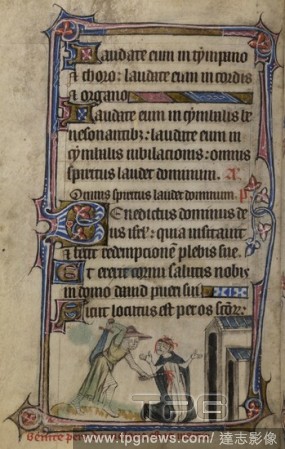 Laudate eum in tympano
& choro: laudate eum in cordis
& organo
Laudate eum in cymbalis be
nesonantib: laudate eum in
cymbalis iubilacionis: omnis
spiritus laudet dominum.
Omnis spiritus laudet dominum. p
Benedictus dominus de
us isrl: quia uisitauit
& fecit redempcionē plebis sue.
Et erexit cornu salutis nobis
in domo dauid pueri sui
Sicut locutus est per os
TPG
www.tpgnews.com/ 達志影像